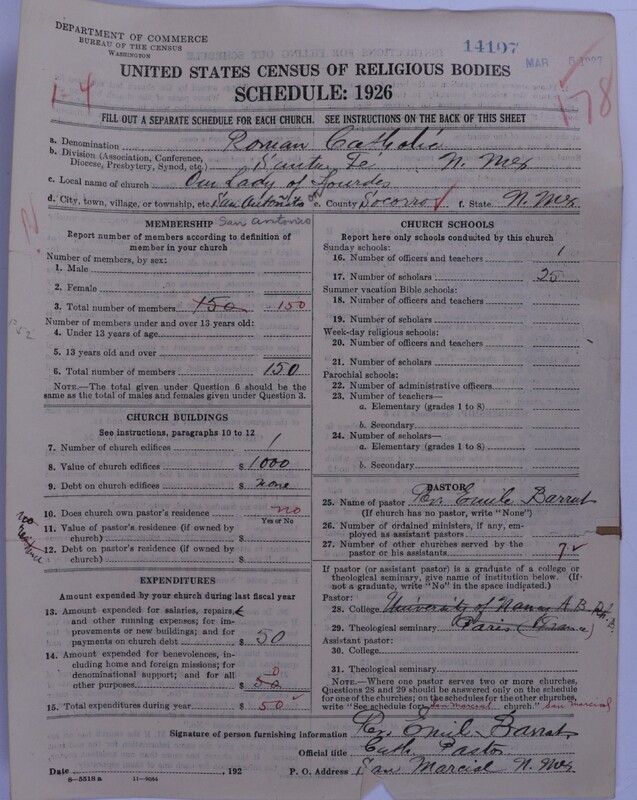 DEPARTMENT OF COMMERCE
BUREAU OF THE CENSUS
WASHINGTON
14107
MAR
UNITED STATES CENSUS OF RELIGIOUS BODIES
SCHEDULE: 1926
1-4
178
FILL OUT A SEPARATE SCHEDULE FOR EACH CHURCH. SEE INSTRUCTIONS ON THE BACK OF THIS SHEET
a. Denomination Roman Catholic
b. Division (Association, Conference, Diocese, Presbytery, Synod, etc.) Santa Fé N. Mex
c. Local name of church Our Lady of Lourdes
d. City, town, village, or township, etc. San Antonito e. County Socorro f. State N. Mex
MEMBERSHIP San Antonio
Report number of members according to definition of
member in your church
Number of members, by sex:
1. Male
2. Female
3. Total number of members 150 150
Number of members under and over 13 years old:
4. Under 13 years of age
5. 13 years old and over
6. Total number of members 150
NOTE.—The total given under Question 6 should be
same as the total of males and females given under Question 3.
CHURCH BUILDINGS
See instructions, paragraphs 10 to 12
7. Number of church edifices 1
8. Value of church edifices $ 1000
9. Debt on church edifices $ none
10. Does church own pastor's residence no
Yes or No
11. Value of pastor's residence (if owned by
church) $
12. Debt on pastor's residence (if owned by
church) $
EXPENDITURES
Amount expended by your church during last fiscal year
13. Amount expended for salaries, repairs,
and other running expenses; for im-
provements or new buildings; and for
payments on church debt $ 50
14. Amount expended for benevolences, in-
cluding home and foreign missions; for
denominational support; and for all
other purposes $ 50 0
15. Total expenditures during year $ 50
CHURCH SCHOOLS
Report here only schools conducted by this church
Sunday schools:
16. Number of officers and teachers 1
17. Number of scholars 25
Summer vacation Bible schools:
18. Number of officers and teachers
19. Number of scholars
Week-day religious schools:
20. Number of officers and teachers
21. Number of scholars
Parochial schools:
22. Number of administrative officers
23. Number of teachers—
a. Elementary (grades 1 to 8)
b. Secondary
24. Number of scholars—
a. Elementary (grades 1 to 8)
b. Secondary
PASTOR
25. Name of pastor Rev Emile Barrat
(If church has no pastor, write "None")
26. Number of ordained ministers, if any, em-
ployed as assistant pastors
27. Number of other churches served by the
pastor or his assistants 7
If pastor (or assistant pastor) is a graduate of a college or
theological seminary, give name of institution below. (If
not a graduate, write "No" in the space indicated.)
Pastor:
28. College University of Nancy A.B. Ph.B.
29. Theological seminary Paris (France)
Assistant pastor:
30. College
31. Theological seminary
NOTE.—Where one pastor serves two or more churches,
Questions 28 and 29 should be answered only on the schedule
for one of the churches; on the schedules for the other churches,
write "See schedule for San Marcial church." San Marcial
Signature of person furnishing information Rev Emil Barrat
Official title Cath. Pastor
Date , 192 P. O. Address San Marcial N. Mex
8-5518 a 11-9084